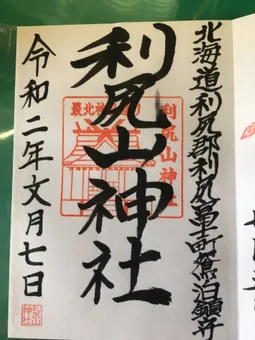 北海道利尻郡利尻富士町鴛泊
利尻山神社
最北神
利尻山神社
令和二年文月七日